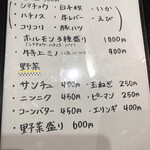 ・シマチョウ ・日本軟 ・いか
・ハチノス ・牛レバー ・えび
・コリコリ ・豚ハツ
・ホルモン3種盛り 1000円
(シマチョウ・ハチノス・
・牛特上ミノ 900円
野菜
・サンチュ 400円 ・玉ねぎ 250円
・ニンニク 450円 ・ピーマン 250円
・コーンバター 450円 ・エリンギ 400円
・野菜盛り 600円